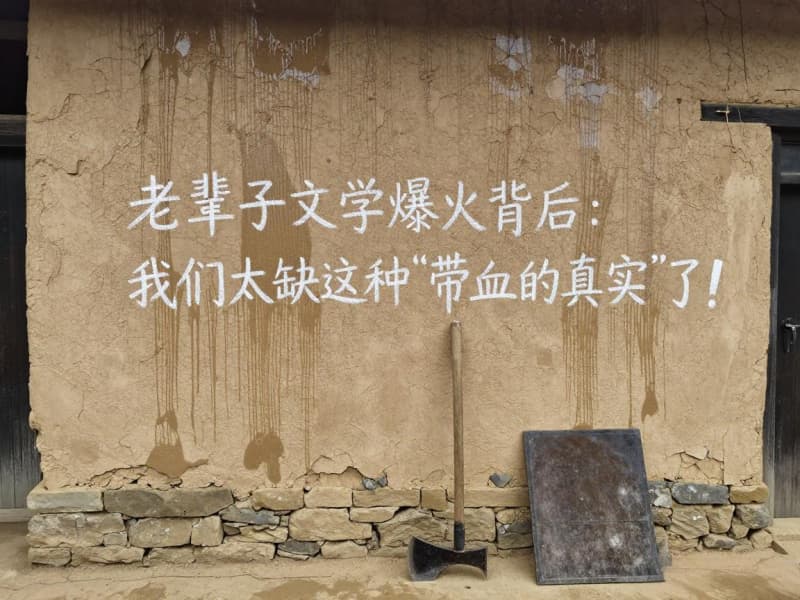 老辈子文学爆火背后：
我们太缺这种“带血的真实”了！